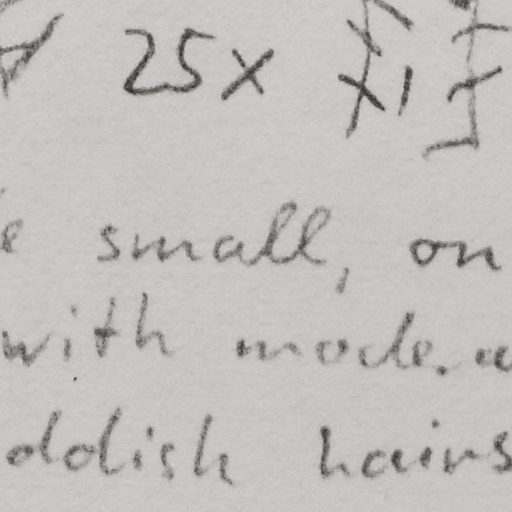 25x
small, on
with mode.
ddish hairs